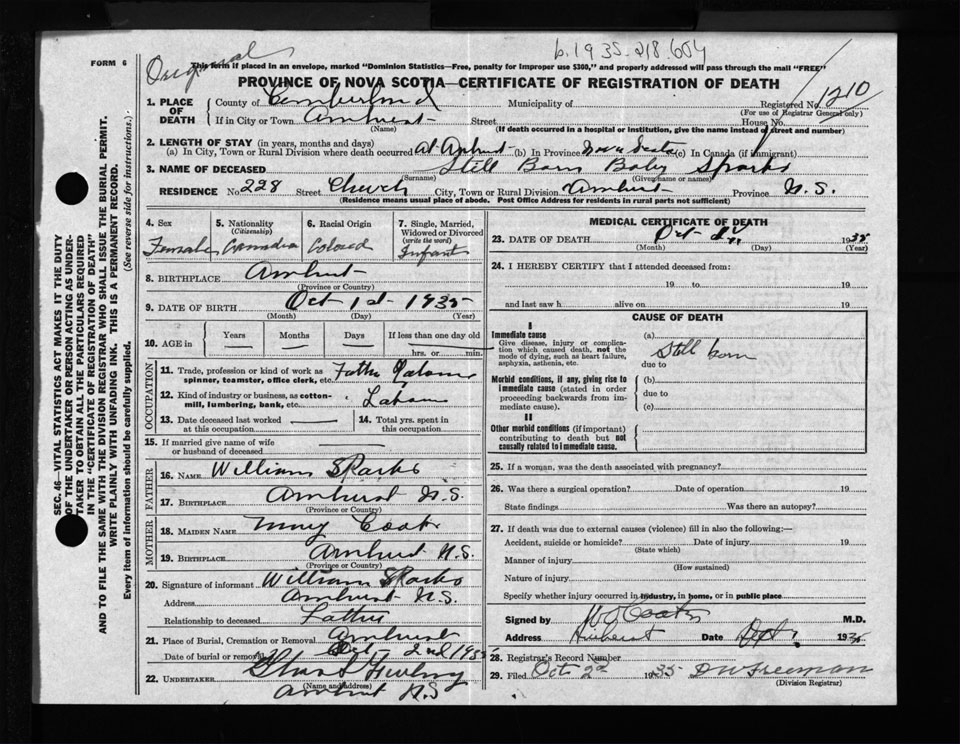 b. 1935-218 604
FORM 6
Original
This form if placed in an envelope, marked "Dominion Statistics—Free, penalty for improper use $300," and properly addressed will pass through the mail "FREE"
PROVINCE OF NOVA SCOTIA—CERTIFICATE OF REGISTRATION OF DEATH
1210
SEC. 46—VITAL STATISTICS ACT MAKES IT THE DUTY
OF THE UNDERTAKER OR PERSON ACTING AS UNDER-
TAKER TO OBTAIN ALL THE PARTICULARS REQUIRED
IN THE "CERTIFICATE OF REGISTRATION OF DEATH"
AND TO FILE THE SAME WITH THE DIVISION REGISTRAR WHO SHALL ISSUE THE BURIAL PERMIT.
WRITE PLAINLY WITH UNFADING INK. THIS IS A PERMANENT RECORD.
Every item of information should be carefully supplied. (See reverse side for instructions.)
1. PLACE OF DEATH
County of Cumberland Municipality of Registered No.
(For use of Registrar General only)
If in City or Town Amherst Street House No.
(Name) (If death occurred in a hospital or institution, give the name instead of street and number)
2. LENGTH OF STAY (in years, months and days)
(a) In City, Town or Rural Division where death occurred At Amherst (b) In Province Nova Scotia (c) In Canada (if immigrant)
3. NAME OF DECEASED Still Born Baby Sparks
(Surname) (Given name or names)
RESIDENCE No 228 Street Church City, Town or Rural Division Amherst Province N.S.
(Residence means usual place of abode. Post Office Address for residents in rural parts not sufficient)
4. Sex 5. Nationality (Citizenship) 6. Racial Origin 7. Single, Married, Widowed or Divorced (write the word)
Female Canadian Colored Infant
8. BIRTHPLACE Amherst
(Province or Country)
9. DATE OF BIRTH Oct 1st 1935
(Month) (Day) (Year)
10. AGE in Years Months Days If less than one day old
hrs. or min.
OCCUPATION
11. Trade, profession or kind of work as spinner, teamster, office clerk, etc. Father
12. Kind of industry or business, as cotton-mill, lumbering, bank, etc.
13. Date deceased last worked at this occupation
14. Total yrs. spent in this occupation
15. If married give name of wife or husband of deceased
FATHER
16. NAME William Sparks
17. BIRTHPLACE Amherst N.S.
(Province or Country)
MOTHER
18. MAIDEN NAME Mary
19. BIRTHPLACE Amherst N.S.
(Province or Country)
20. Signature of informant William Sparks
Address Amherst N.S.
Relationship to deceased Father
21. Place of Burial, Cremation or Removal Amherst
Date of burial or removal Oct 2nd 1935
22. UNDERTAKER
(Name and address)
Amherst N.S
MEDICAL CERTIFICATE OF DEATH
23. DATE OF DEATH Oct 1935
(Month) (Day) (Year)
24. I HEREBY CERTIFY that I attended deceased from:
19 to 19
and last saw h alive on 19
CAUSE OF DEATH
I
Immediate cause
Give disease, injury or complication which caused death, not the mode of dying, such as heart failure, asphyxia, asthenia, etc.
(a) Still born
due to
Morbid conditions, if any, giving rise to immediate cause (stated in order proceeding backwards from immediate cause).
(b)
due to
(c)
II
Other morbid conditions (if important) contributing to death but not causally related to immediate cause.
25. If a woman, was the death associated with pregnancy?
26. Was there a surgical operation? Date of operation 19
State findings Was there an autopsy?
27. If death was due to external causes (violence) fill in also the following:—
Accident, suicide or homicide? Date of injury 19
(State which)
Manner of injury
(How sustained)
Nature of injury
Specify whether injury occurred in industry, in home, or in public place
Signed by M.D.
Address Amherst Date 1935
28. Registrar's Record Number
29. Filed Oct 2d 1935 D W Freeman
(Division Registrar)